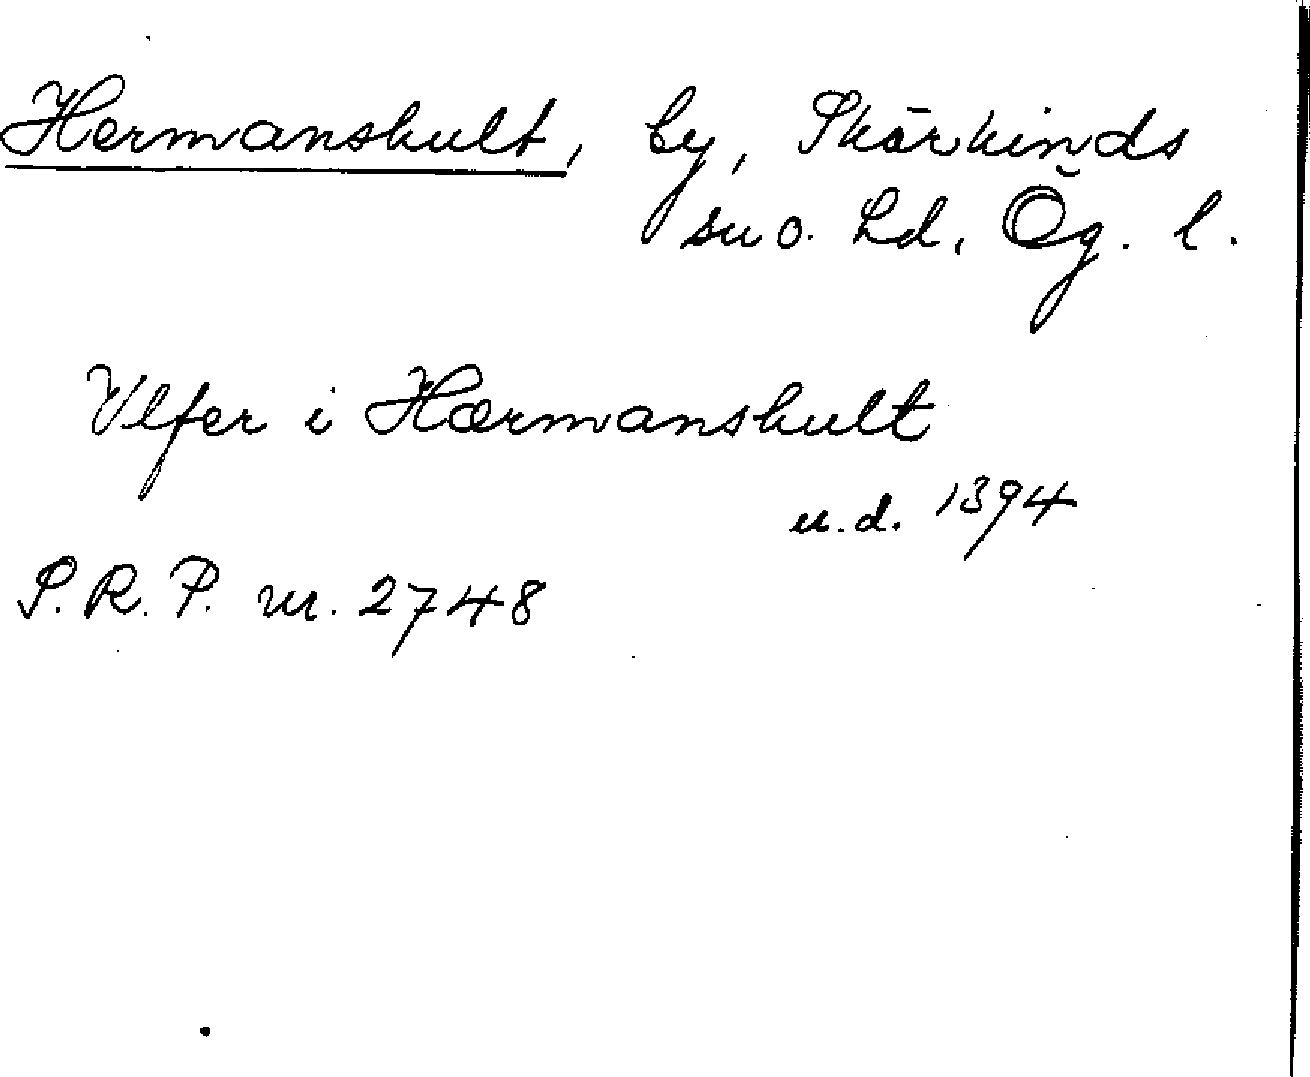 Hermanshult, by, Skärkinds
sn o. hd, Ög. l.
Ulfer i Hærmanshult
u.d. 1394
S.R.P. nr. 2748